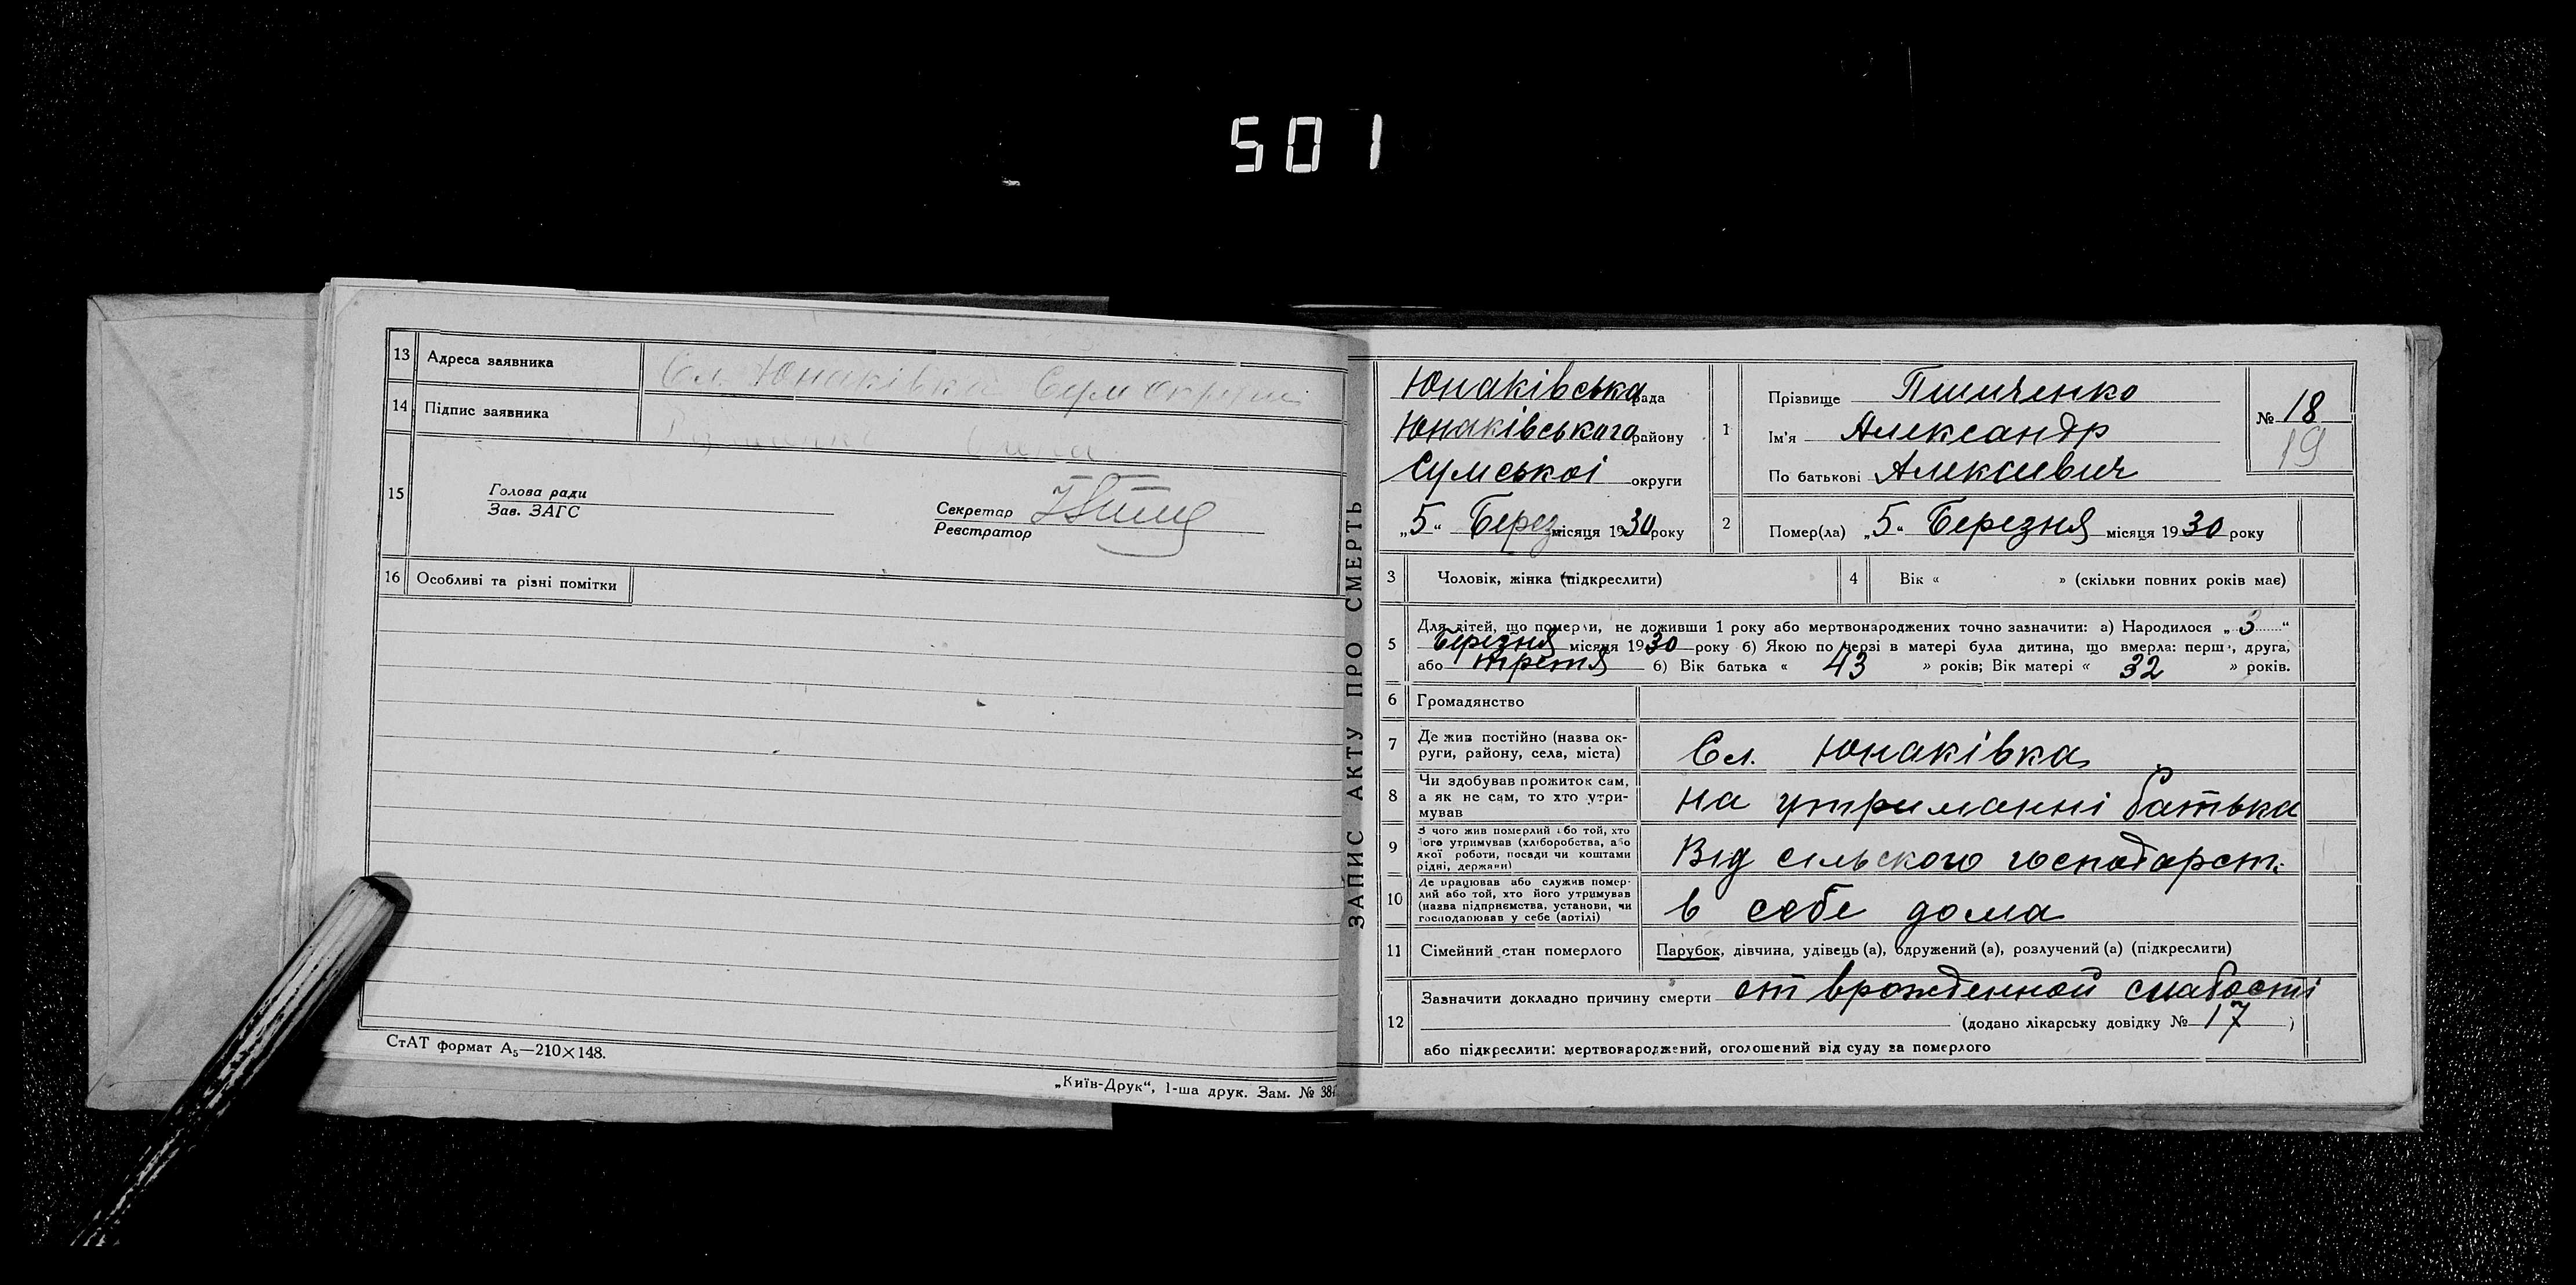 501
13 Адреса заявника Сл. Юнаківка Сум округи
14 Підпис заявника
15 Голова ради
Зав. ЗАГС
Секретар
Реєстратор
16 Особливі та різні помітки
СтАТ формат А₅—210×148.
„Київ-Друк“, 1-ша друк. Зам. № 384
ЗАПИС АКТУ ПРО СМЕРТЬ
Юнаківська рада
Юнаківського району
Сумської округи
„5“ Берез місяця 1930 року
1 Прізвище Пшиченко
Ім'я Александр
По батькові Алексиевич
№ 18
19
2 Помер(ла) „5“ Березня місяця 1930 року
3 Чоловік, жінка (підкреслити)
4 Вік « » (скільки повних років має)
5 Для дітей, що померли, не доживши 1 року або мертвонароджених точно зазначити: а) Народилося „3“
Березня місяця 1930 року б) Якою по черзі в матері була дитина, що вмерла: перша, друга,
або третя б) Вік батька « 43 » років; Вік матері « 32 » років.
6 Громадянство
7 Де жив постійно (назва ок-
руги, району, села, міста) Сл. Юнаківка
8 Чи здобував прожиток сам,
а як не сам, то хто утри-
мував на утриманні батька
9 З чого жив померлий або той, хто
його утримував (хліборобства, або
якої роботи, посади чи коштами
рідні, держави) Від сільского господарст.
10 Де працював або служив помер-
лий або той, хто його утримував
(назва підприємства, установи, чи
господарював у себе (артілі) в себе дома
11 Сімейний стан померлого Парубок, дівчина, удівець (а), одружений (а), розлучений (а) (підкреслити)
12 Зазначити докладно причину смерти от врожденной слабости
(додано лікарську довідку № 17 )
або підкреслити: мертвонароджений, оголошений від суду за померлого